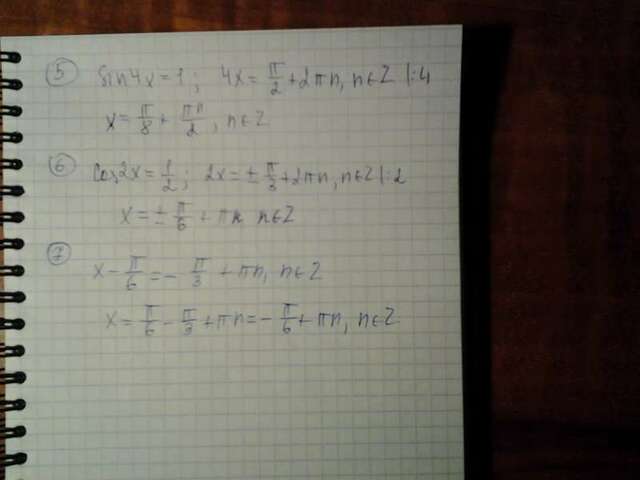 ⑤ sin4x=1; 4x=π/2+2πn, n∈Z |:4
x=π/8+πn/2, n∈Z
⑥ cos2x=1/2; 2x=±π/3+2πn, n∈Z |:2
x=±π/6+πn n∈Z
⑦ x-π/6=-π/3+πn, n∈Z
x=π/6-π/3+πn=-π/6+πn, n∈Z